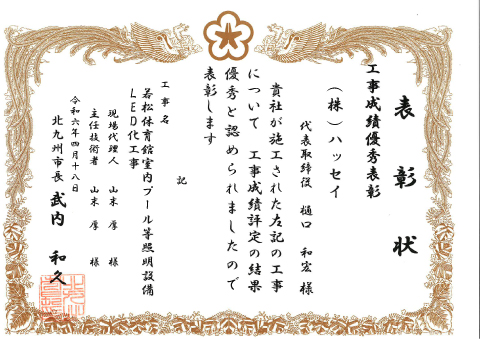 表彰状
工事成績優秀表彰
(株)ハッセイ
代表取締役 樋口 和宏 様
貴社が施工された左記の工事
について 工事成績評定の結果
優秀と認められましたので
表彰します
記
工事名
若松体育館室内プール等照明設備
LED化工事
現場代理人 山本 厚 様
主任技術者 山本 厚 様
令和六年四月十八日
北九州市長 武内 和久